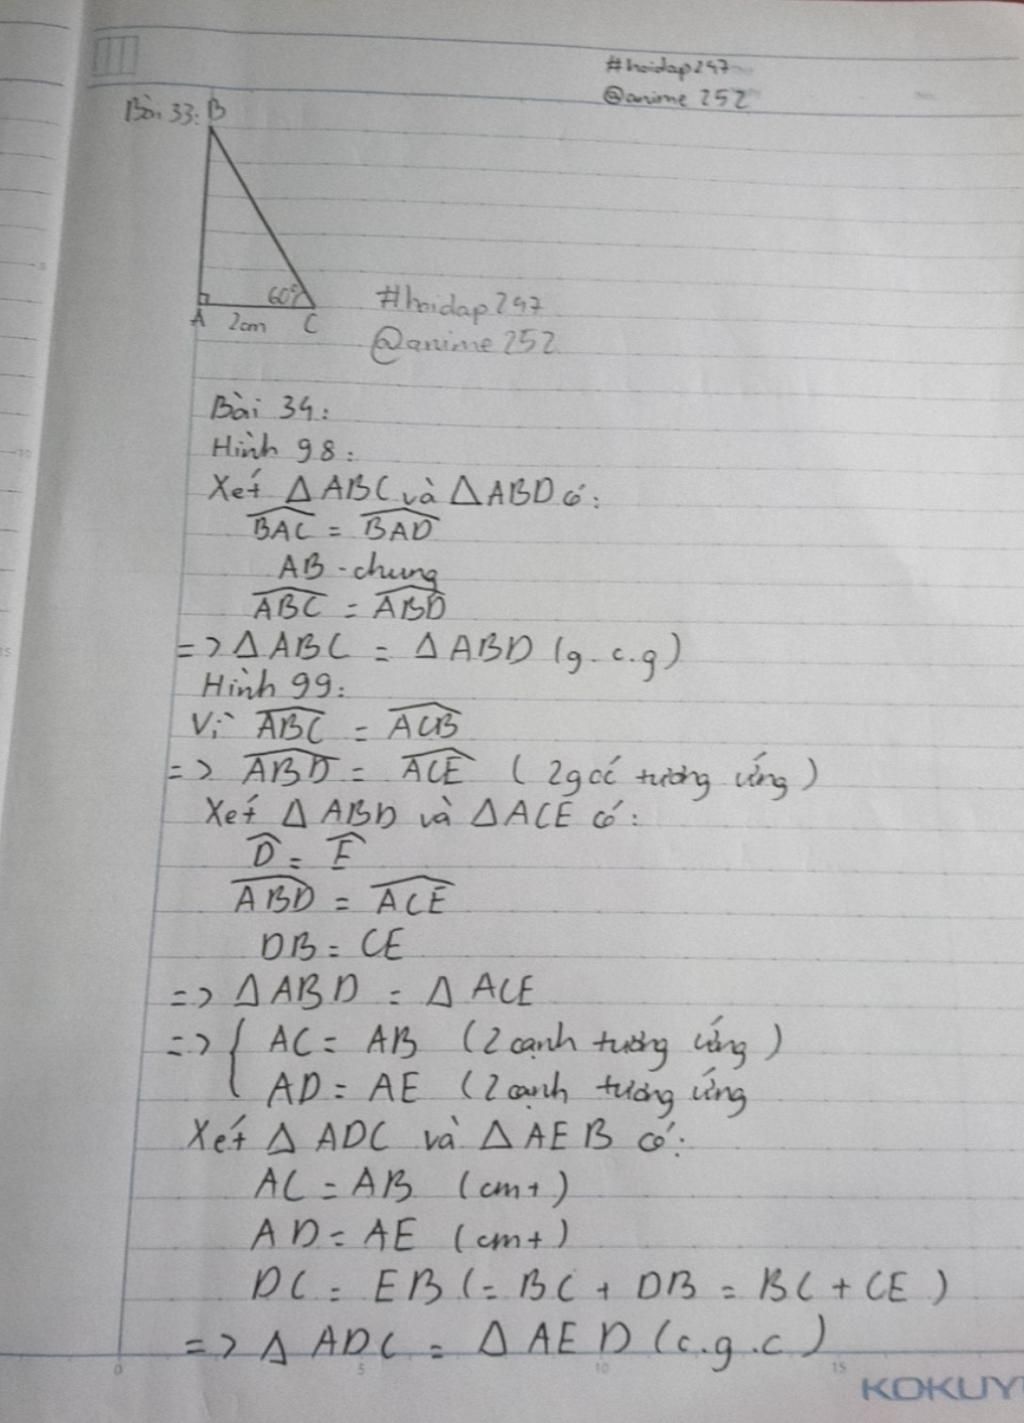 #hoidap247
@anime 252
Bài 33: B
60°
A 2cm C
#hoidap247
@anime 252
Bài 34:
Hình 98:
Xét Δ ABC và Δ ABD có:
\widehat{BAC} = \widehat{BAD}
AB - chung
\widehat{ABC} = \widehat{ABD}
=> Δ ABC = Δ ABD (g.c.g)
Hình 99:
Vì \widehat{ABC} = \widehat{ACB}
=> \widehat{ABD} = \widehat{ACE} (2 góc tương ứng)
Xét Δ ABD và Δ ACE có:
\widehat{D} = \widehat{E}
\widehat{ABD} = \widehat{ACE}
DB = CE
=> Δ ABD = Δ ACE
=> { AC = AB (2 cạnh tương ứng)
AD = AE (2 cạnh tương ứng
Xét Δ ADC và Δ AEB có:
AC = AB (cmt)
AD = AE (cmt)
DC = EB (= BC + DB = BC + CE)
=> Δ ADC = Δ AED (c.g.c)
0 5 10 15
KOKUY